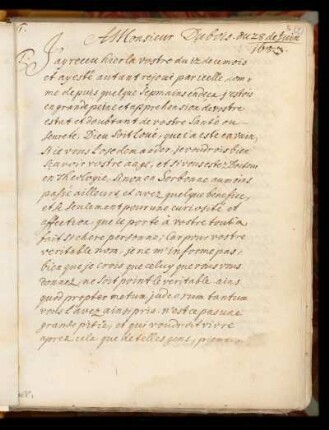 A Monsieur Dubois. du 28 de Juin
J'ay receu hier la vostre du 12 de ce mois
et ay esté autant resjoui par icelle, com-
me depuis quelque sepmaines en deça j'estois
en grande peine et apprehension de vostre
estat et doubtant de vostre Santé ou
seureté. Dieu soit Loué, que ç'a esté en vain,
Si ie vous l'ose demander, je voudrois bien
scavoir vostre aage, et si vous estes Docteur
en Theologie, sinon en Sorbonne au moins
passé ailleurs, et avez quelque benefice,
et ce seulement pour une curiosité et
affection, que ie porte à vostre tout à
fait si chere personne; Car pour vostre
veritable nom, je ne m'informe pas,
bien que je crois que celuy que vous vous
donnez, ne soit point le veritable, ains
quod propter metum judaeorum tantum
vous l'avez ainsi pris. n'est ce pas une
grande pitié, et qui voudroit vivre
aprez cela que de telles gens,